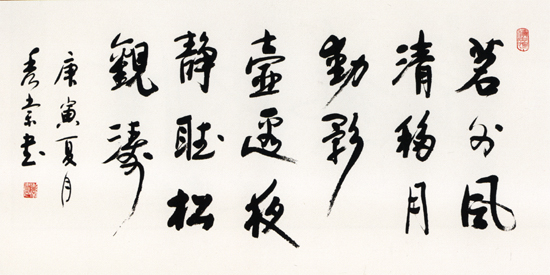 茗外風
清移月
動影
壺邊夜
靜聽松
觀濤
庚寅夏月
書